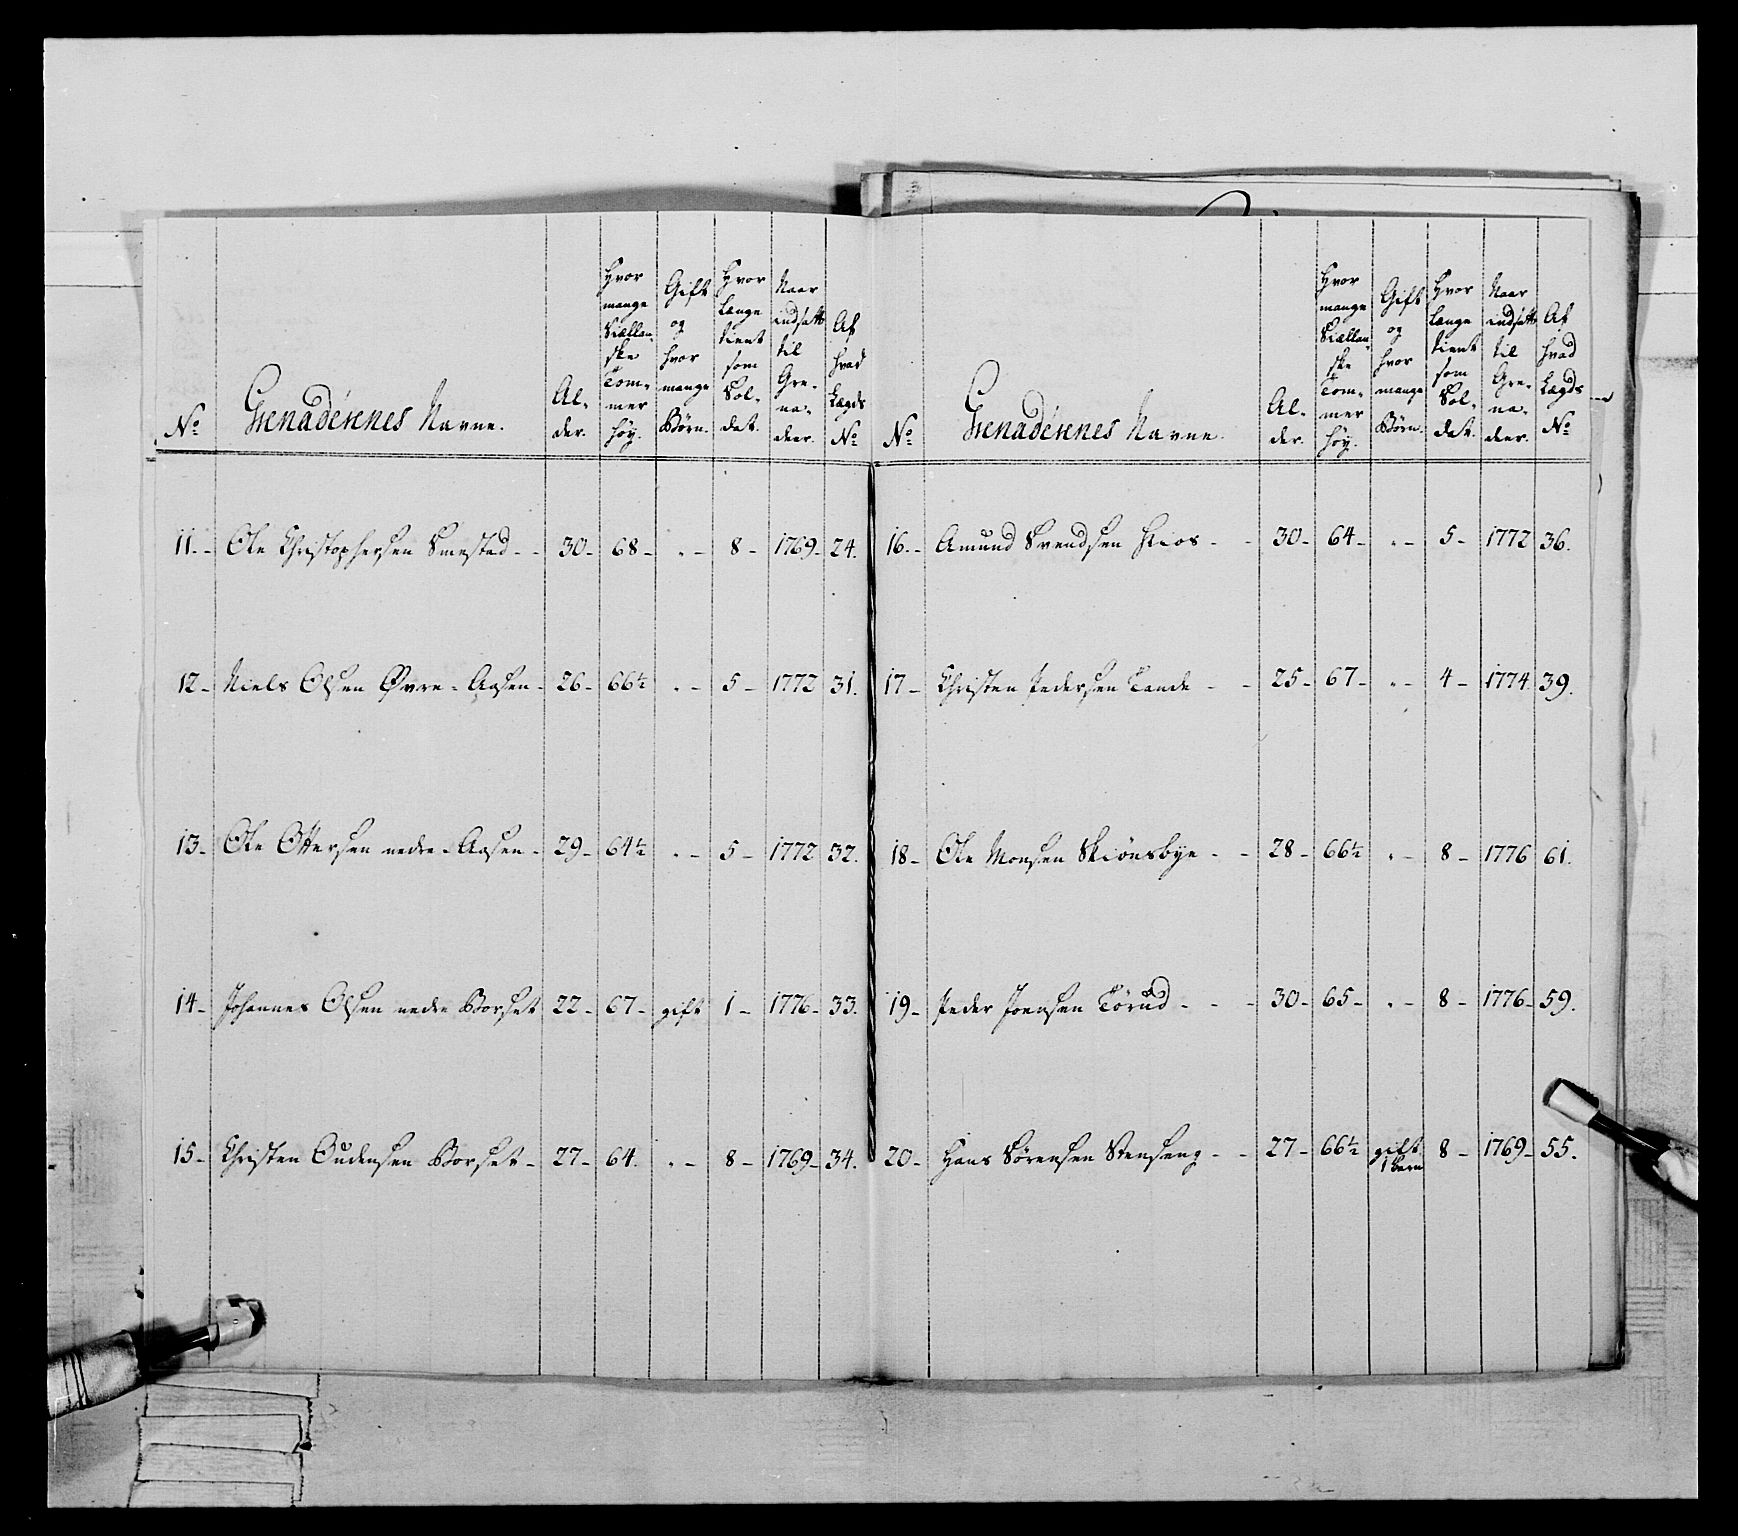 No
Grenadérernes Navne.
Al-
der.
Hvor
mange
Siællan-
ske
Tom-
mer
høy.
Gift
og
hvor
mange
Børn.
Hvor
længe
tient
som
Sol-
dat.
Naar
indsatt
til
Gre-
na-
deer.
Af
hvad
Lægds
No
11.- Ole Christophersen Smestad - - 30- 68- "- 8- 1769- 24.
12- Niels Olsen Øvre-Aasen- 26- 66½ "- 5- 1772 31.
13- Ole Ottersen nedre-Aasen- 29- 64½ "- 5- 1772 32.
14- Johannes Olsen nedre Borset 22- 67- gift 1- 1776- 33.
15- Christen Oudensen Borset- 27- 64. "- 8- 1769- 34.
No
Grenadérernes Navne.
Al-
der.
Hvor
mange
Siællan-
ske
Tom-
mer
høy.
Gift
og
hvor
mange
Børn.
Hvor
længe
tient
som
Sol-
dat.
Naar
indsatt
til
Gre-
na-
deer.
Af
hvad
Lægds
No
16.- Amund Svendsen - - 30- 64- "- 5- 1772 36.
17- Christen Pedersen Tande - - 25- 67- "- 4- 1774. 39.
18- Ole Monsen Skiønsbye - - 28- 66½ "- 8- 1776 61.
19- Peder Joensen Törud - - - 30- 65- "- 8- 1776- 59.
20- Hans Sørensen Stenseng - - 27- 66½ gift 8- 1769- 55.
1 barn